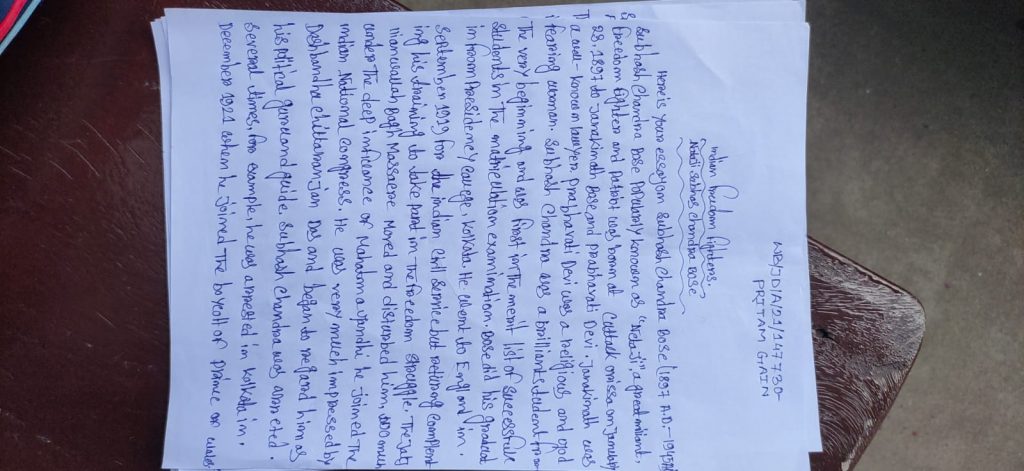 WB/JD/A/21/147730
PRITAM GAIN
Indian freedom fighters.
Netaji Subhas Chandra Bose
Here is your essay on Subhash Chandra Bose (1897 A.D. - 1945
Subhash Chandra Bose Popularly known as "Netaji", a great militant,
freedom fighter and Patriot was born at Cuttack orissa on January
23, 1897 to Janakinath Bose, and prabhavati Devi. Janakinath was
a well-known lawyer. Prabhavati Devi was a religious and god
fearing woman. Subhash Chandra was a brilliant student from
The very beginning and was first in the merit list of successful
students in The matriculation examination. Bose did his graduat
in from Presidency College, Kolkata. He went to England in.
September 1919 for the indian Civil Service but
ing his training to take part in The freedom struggle. The Jal
lianwallah Bagh Massacre Moved and disturbed him, too much
under The deep influence of Mahatma Gandhi he joined The
indian National Congress. He was very much impressed by
Deshbandhu Chittaranjan Das and began to regard him as
his guru and guide. Subhash Chandra was arrested.
several times, for example, he was arrested in Kolkata in.
December 1921 when he joined The boycott of Prince or wales